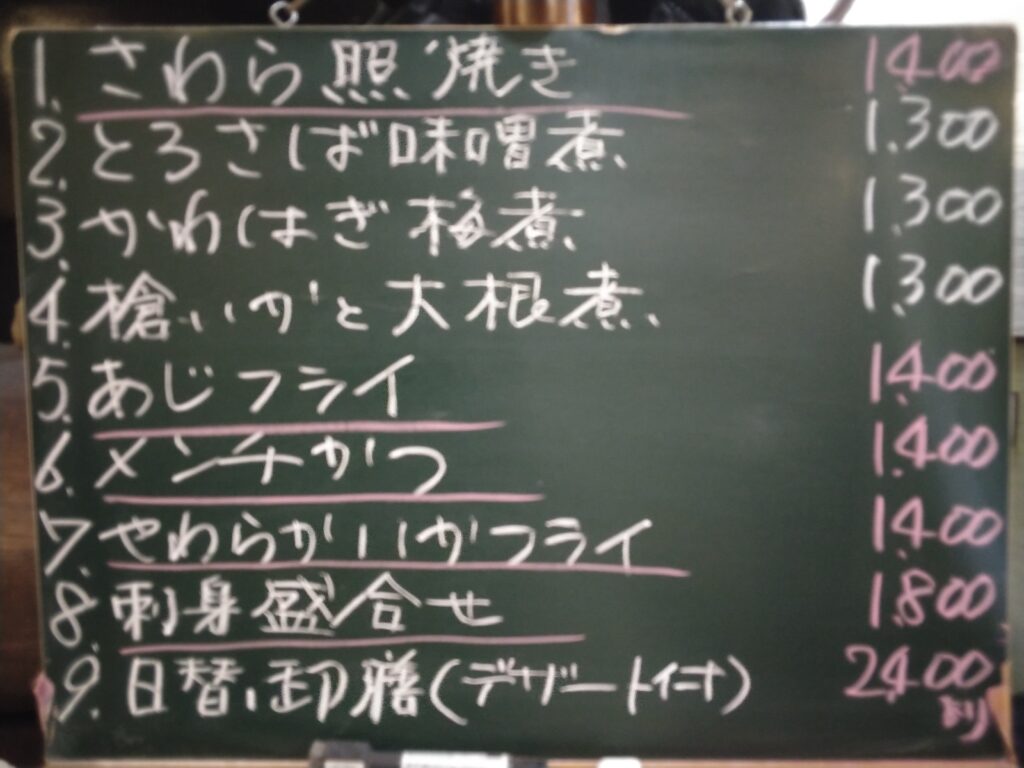 1. さわら照焼き 1.400
2. とろさば味噌煮 1.300
3. かわはぎ梅煮 1.300
4. 槍いかと大根煮 1.300
5. あじフライ 1.400
6. メンチかつ 1.400
7. やわらかいかフライ 1.400
8. 刺身盛合せ 1.800
9. 日替り御膳(デザート付) 2.400
より